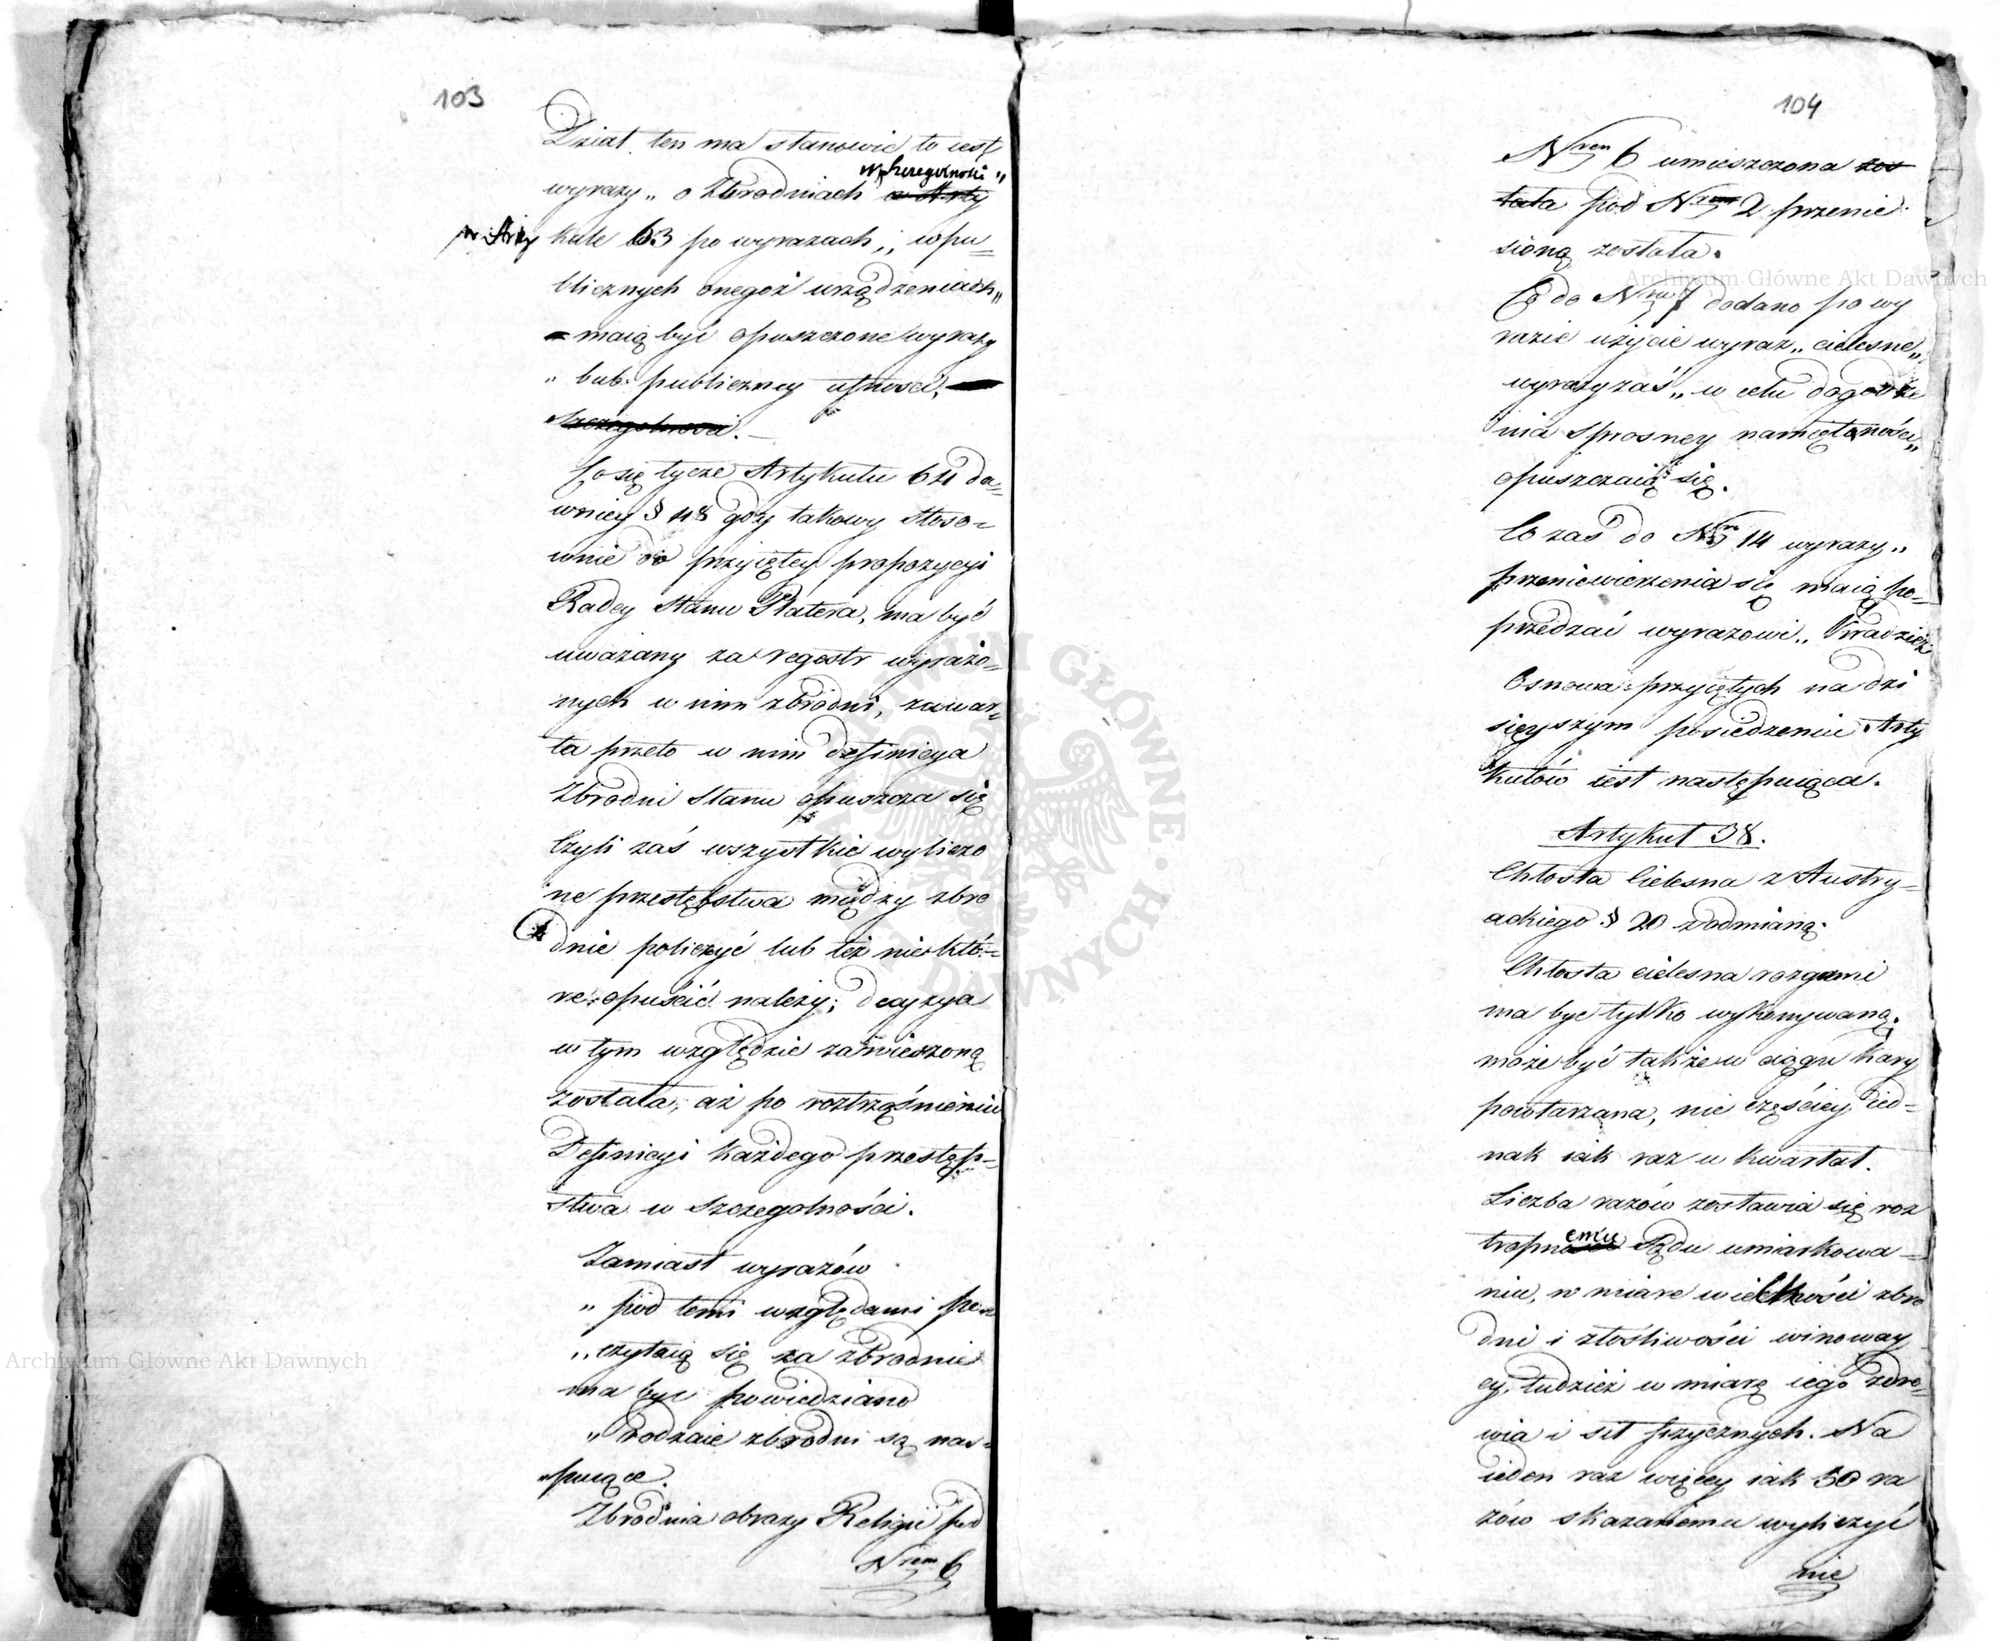 103
Dział ten ma stanowić to iest
wyrazy „ o Zbrodniach w szczegolności „
w Arty kule 63 po wyrazach „ w pu=
blicznych onegoż urządzeniach „
maią być opuszczone wyrazy
„ lub publiczney ufności,
szczegolności. —
Co się tycze Artykułu 64 da=
wniey § 48 gdy takowy stoso=
wnie do przyiętey propozycyi
Radcy Stanu Platera, ma być
uważany za regestr wyrażo=
nych w nim zbrodni, zawar=
ta przeto w nim definicya
Zbrodni Stanu opuszcza się
Czyli zaś wszystkie wyliczo
ne przestępstwa między zbro
dnie policzyć lub też niektó=
re opuścić należy; decyzya
w tym względzie zawieszoną
została, aż po roztrząśnieniu
Definicyi każdego przestęp=
stwa w szczegolności.
Zamiast wyrazów
„ pod temi względami po=
„ czytaią się za zbrodnie
ma być powiedziano
„ Rodzaie zbrodni są nas=
„ puiące.
Zbrodnia obrazy Religii pod
Nrem 6
104
Nrem 6 umieszczona zos
tała pod Nrem 2 przenie
sioną została.
Co do Nru 7 dodano po wy
razie użycie wyraz „ cielesne „
wyrazy zaś „ w celu dogodze
nia sprosney namiętności „
opuszczaią się.
Co zaś do Nru 14 wyrazy „
przeniewierzenia się maią po=
przedzać wyrazowi „ Kradzież
Osnowa przyiętych na dzi
sieyszym posiedzeniu Arty
kułów iest następuiąca.
Artykuł 38.
Chłosta Cielesna z Austry=
ackiego § 20 z odmianą.
Chłosta cielesna rozgami
ma być tylko wykonywaną.
może być także w ciągu kary
powtarzana, nie częściey ied=
nak iak raz w kwartał.
Liczba razów zostawia się roz
tropnemu Sądu umiarkowa=
niu, w miarę wielkości zbro
dni i złośliwości winoway
cy, tudzież w miarę iego zdro=
wia i sił fizycznych. Na
ieden raz więcey iak 50 ra
zów skazanemu wyliczyć
nie
Archiwum Główne Akt Dawnych
Archiwum Główne Akt Dawnych
ARCHIWUM GŁÓWNE AKT DAWNYCH